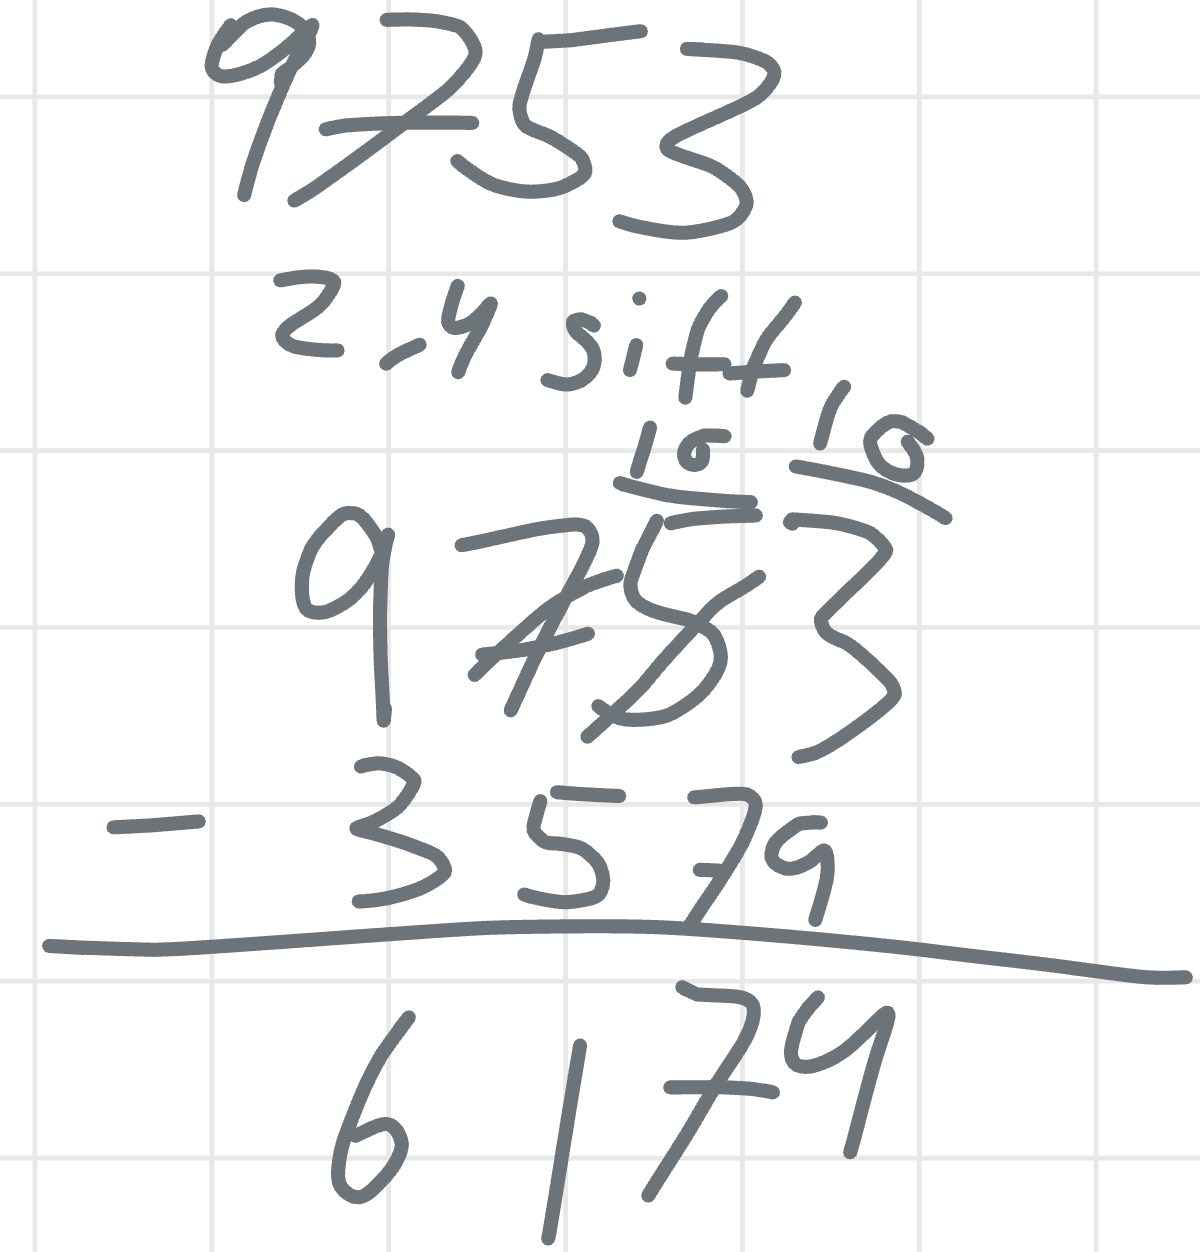 9753
2,4 siff
10 10
9753
- 3579
6174